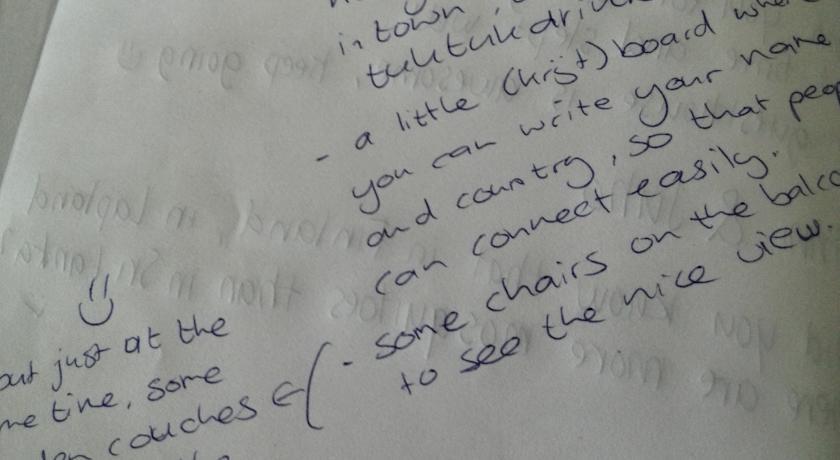 in town,
tuktuk drive
- a little (krijt) board where
you can write your name
and country, so that peop
can connect easily.
- some chairs on the balco
to see the nice view.
out just at the
me time, some
couches